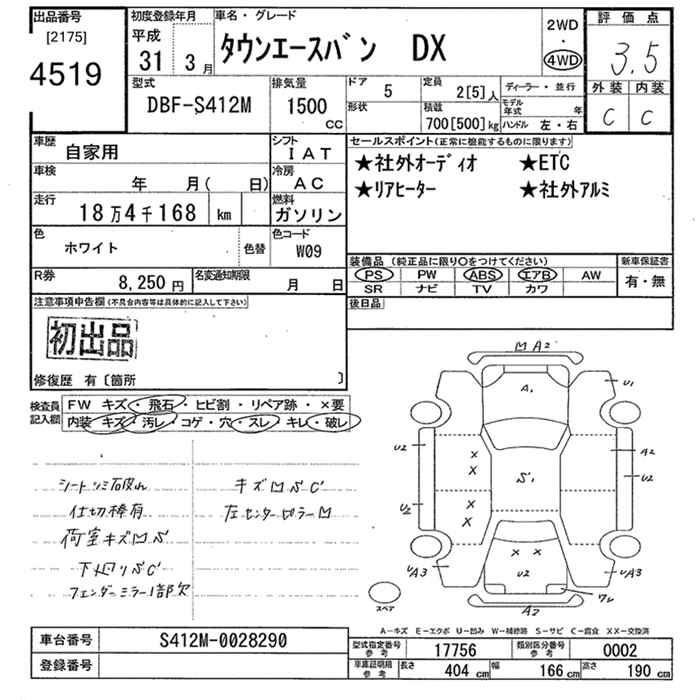 出品番号
[2175]
4519
初度登録年月
平成
31 3月
車名・グレード
タウンエースバン DX
2WD
・
4WD
評価点
3.5
外装 内装
C C
型式
DBF-S412M
排気量
1500
CC
ドア
5
形状
定員
2[5]人
積載
700[500]kg
ディーラー・並行
モデル年式 年
ハンドル 左・右
車歴
自家用
シフト
IAT
車検
年 月( 日)
冷房
AC
走行
18万4千168 km
燃料
ガソリン
色
ホワイト
色替
色コード
W09
R券
8,250円
名変通知期限
月 日
セールスポイント(正常に機能するものに限ります)
★社外オーディオ ★ETC
★リアヒーター ★社外アルミ
装備品(純正品に限り○をつけてください)
PS PW ABS エアB AW
SR ナビ TV カワ
新車保証書
有・無
後日品
注意事項申告欄(不具合内容等は具体的に記入して下さい)
初出品
修復歴 有〔箇所 〕
検査員記入欄
FW キズ・飛石・ヒビ割・リペア跡・×要
内装 キズ・汚レ・コゲ・穴・スレ・キレ・破レ
シートシミ破れ
仕切棒有
荷室キズ凹S
下廻りSC
フェンダーミラー1部欠
キズ凹SC
左センターピラー凹
凹 A2
A1
U1
U2
A2
S1
U2
U2
×
×
×
×
× ×
U2
UA3
UA3
ワレ
A2
スペア
A-キズ E-エクボ U-凹み W-補修跡 S-サビ C-腐食 XX-交換済
車台番号 S412M-0028290
登録番号
型式指定番号 参考 17756
類別区分番号 参考 0002
車庫証明用 参考
長さ 404 cm
幅 166 cm
高さ 190 cm